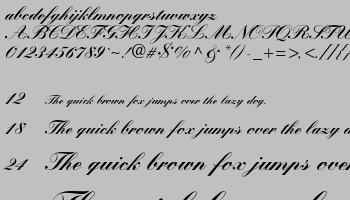 abcdefghijklmnopqrstuvwxyz
ABCDEFGHIJKLMNOPQRSTU
0123456789`~!@#$%^&*()-_+=>.<./[{
12 The quick brown fox jumps over the lazy dog.
18 The quick brown fox jumps over the lazy
24 The quick brown fox jumps over